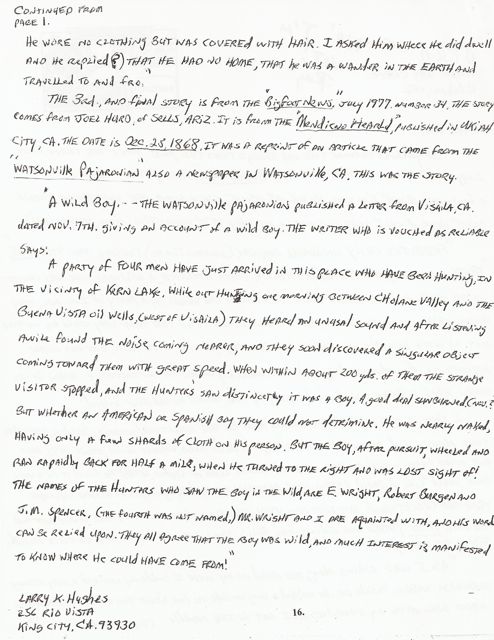 CONTINUED FROM
PAGE 1.
HE WORE NO CLOTHING BUT WAS COVERED WITH HAIR. I ASKED HIM WHERE HE DID DWELL
AND HE REPLIED(?) THAT HE HAD NO HOME, THAT HE WAS A WANDER IN THE EARTH AND
TRAVELLED TO AND FRO."
THE 3RD. AND FINAL STORY IS FROM THE "BIGFOOT NEWS," JULY 1977. NUMBER 34. THE STORY
COMES FROM JOEL HURD, OF SELLS, ARIZ. IT IS FROM THE "MENDICINO HEARLD", PUBLISHED IN UKIAH
CITY, CA. THE DATE IS DEC. 25, 1868. IT WAS A REPRINT OF AN ARTICLE THAT CAME FROM THE
"WATSONVILLE PAJARONIAN" ALSO A NEWSPAPER IN WATSONVILLE, CA. THIS WAS THE STORY.
"A WILD BOY. -- THE WATSONVILLE PAJARONION PUBLISHED A LETTER FROM VISAILA, CA.
DATED NOV. 7TH. GIVING AN ACCOUNT OF A WILD BOY. THE WRITER WHO IS VOUCHED AS RELIABLE
SAYS:
A PARTY OF FOUR MEN HAVE JUST ARRIVED IN THIS PLACE WHO HAVE BEEN HUNTING, IN
THE VICINTY OF KERN LAKE. WHILE OUT HUNTING ONE MORNING BETWEEN CHOLANE VALLEY AND THE
BUENA VISTA OIL WELLS, (WEST OF VISAILA) THEY HEARD AN UNUSAL SOUND AND AFTER LISTENING
AWILE FOUND THE NOISE COMING NEARER, AND THEY SOON DISCOVERED A SINGULAR OBJECT
COMING TOWARD THEM WITH GREAT SPEED. WHEN WITHIN ABOUT 200 YDS. OF THEM THE STRANGE
VISITOR STOPPED, AND THE HUNTERS SAW DISTINCTLY IT WAS A BOY. A GOOD DEAL SUNBURNED,
BUT WHETHER AN AMERICAN OR SPANISH BOY THEY COULD NOT DETRIMINE. HE WAS NEARLY NAKED,
HAVING ONLY A FEW SHARDS OF CLOTH ON HIS PERSON. BUT THE BOY, AFTER PURSUIT, WHEELED AND
RAN RAPAIDLY BACK FOR HALF A MILE, WHEN HE TURNED TO THE RIGHT AND WAS LOST SIGHT OF!
THE NAMES OF THE HUNTERS WHO SAW THE BOY IN THE WILD ARE E. WRIGHT, ROBERT BURGEN AND
J.M. SPENCER, (THE FOURTH WAS NOT NAMED,) MR. WRIGHT AND I ARE AQUAINTED WITH, AND HIS WORD
CAN BE RELIED UPON. THEY ALL AGREE THAT THE BOY WAS WILD, AND MUCH INTEREST IS MANIFESTED
TO KNOW WHERE HE COULD HAVE COME FROM!"
LARRY K. HUGHES
256 RIO VISTA
KING CITY, CA. 93930
16.